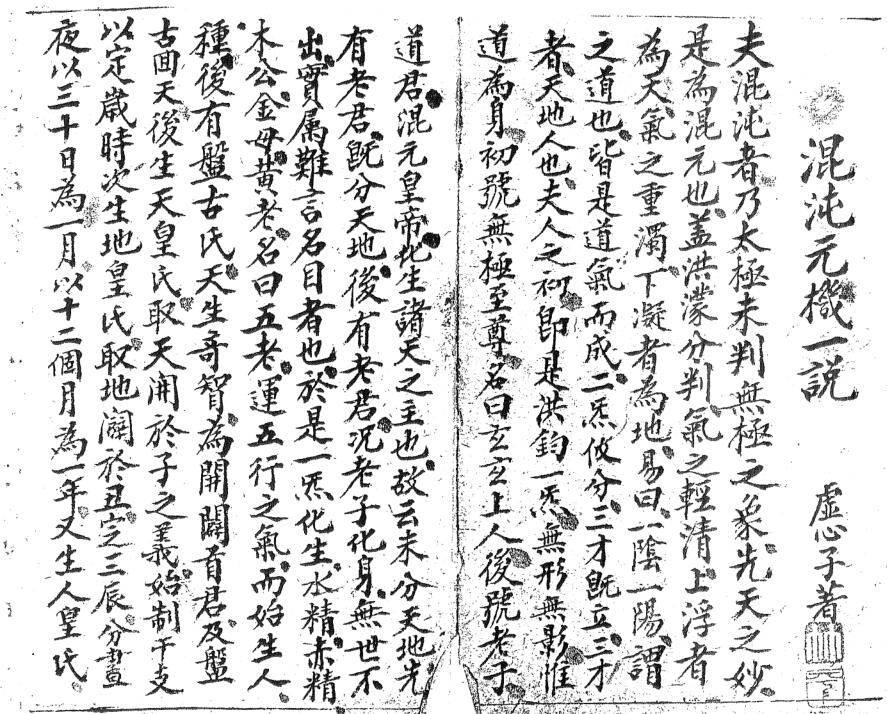 混沌元機一説 虛心子著
夫混沌者乃太極未判無極之象先天之妙
是為混元也盖洪濛分判氣之輕清上浮者
為天氣之重濁下凝者為地易曰一陰一陽謂
之道也皆是道氣而成二炁攸分三才既立三才
者天地人也夫人之初即是洪鈞一炁無形無影惟
道為身初號無極至尊名曰玄玄上人後號老子
道君混元皇帝化生諸天之主也故云未分天地先
有老君既分天地後有老君况老子化身無世不
出實属難言名目者也於是一炁化生水精赤精
木公金母黄老名曰五老運五行之氣而始生人
種後有盤古氏天生奇智為開闢首君及盤
古回天後生天皇氏取天開於子之義始制干支
以定歲時次生地皇氏取地闢於丑定三辰分晝
夜以三十日為一月以十二個月為一年又生人皇氏